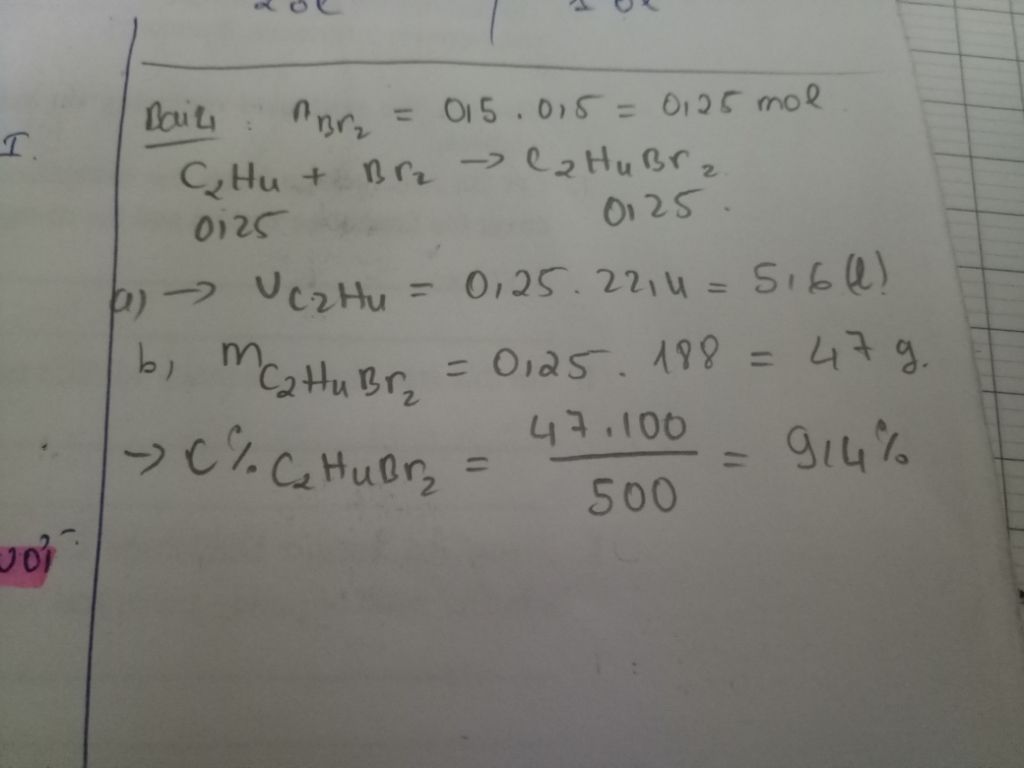 I.
Bài 4 : nBr₂ = 0,5 . 0,5 = 0,25 mol
C₂H₄ + Br₂ → C₂H₄Br₂
0,25 0,25 .
a) → VC₂H₄ = 0,25 . 22,4 = 5,6 (l)
b, mC₂H₄Br₂ = 0,25 . 188 = 47 g.
→ C% C₂H₄Br₂ = 47.100 / 500 = 9,4%